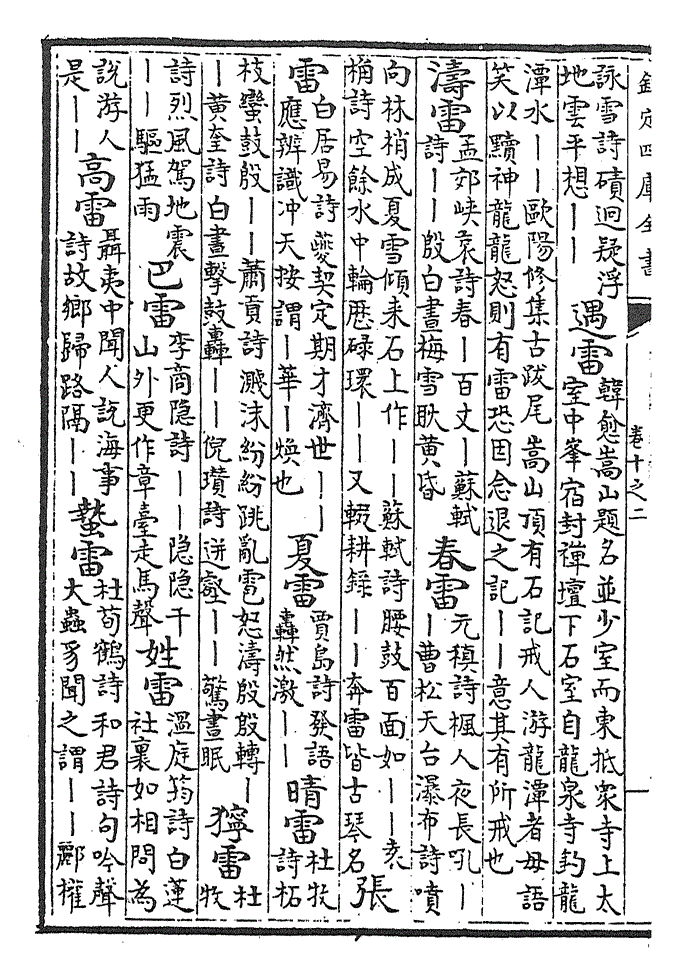 欽定四庫全書
卷十之二
詠雪詩磧迥疑浮
地雲平想——
遇雷
韓愈嵩山題名並少室而東抵衆寺上太
室中峯宿封禪壇下石室自龍泉寺釣龍
潭水——歐陽修集古跋尾嵩山頂有石記戒人游龍潭者毋語
笑以黷神龍龍怒則有雷恐因念退之記——意其有所戒也
濤雷
孟郊峽哀詩春—百丈—蘇軾
詩——殷白晝梅雪耿黃昏
春雷
元稹詩楓人夜長吼—
—曹松天台瀑布詩噴
向林梢成夏雪傾来石上作——蘇軾詩腰鼓百面如——袁
桷詩空餘水中輪歷碌環——又輟耕録——奔雷皆古琴名
張
雷
白居易詩夔契定期才濟世——
應辨識冲天按謂—華—煥也
夏雷
賈島詩發語
轟然激——
晴雷
杜牧
詩柘
枝蠻鼓殷——蕭貢詩濺沫紛紛跳亂雹怒濤殷殷轉—
—黃奎詩白晝擊鼓轟——倪瓚詩迸壑——驚晝眠
獰雷
杜
牧
詩烈風駕地震
——驅猛雨
巴雷
李商隐詩——隐隐千
山外更作章臺走馬聲
姓雷
溫庭筠詩白蓮
社裏如相問為
說游人
是——
高雷
聶夷中聞人說海事
詩故鄉歸路隔——
蟄雷
杜荀鶴詩和君詩句吟聲
大蟲豸聞之謂——酈權